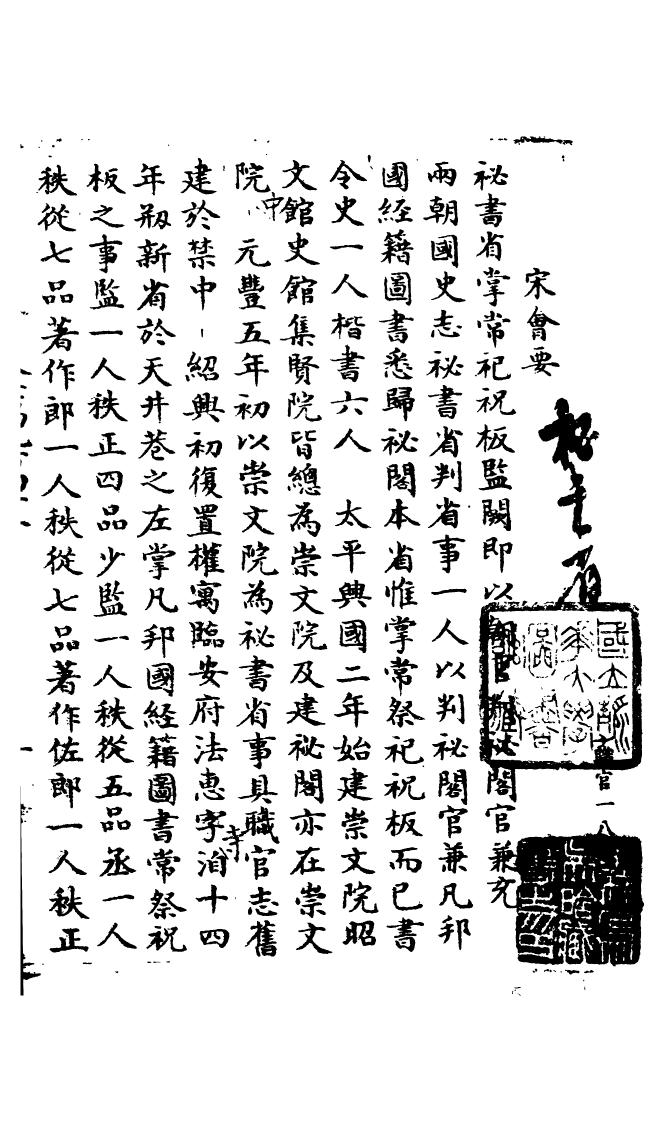 宋會要
祕書省
職官一八
祕書省掌常祀祝板監闕即以
閣官兼充
兩朝國史志祕書省判省事一人以判祕閣官兼凡邦
國經籍圖書悉歸祕閣本省惟掌常祭祀祝板而已書
令史一人楷書六人　太平興國二年始建崇文院昭
文館史館集賢院皆總為崇文院及建祕閣亦在崇文
院中　元豐五年初以崇文院為祕書省事具職官志舊
建於禁中　紹興初復置權寓臨安府法惠字洎十四
寺
年剏新省於天井巷之左掌凡邦國經籍圖書常祭祝
板之事監一人秩正四品少監一人秩從五品丞一人
秩從七品著作郎一人秩從七品著作佐郎一人秩正